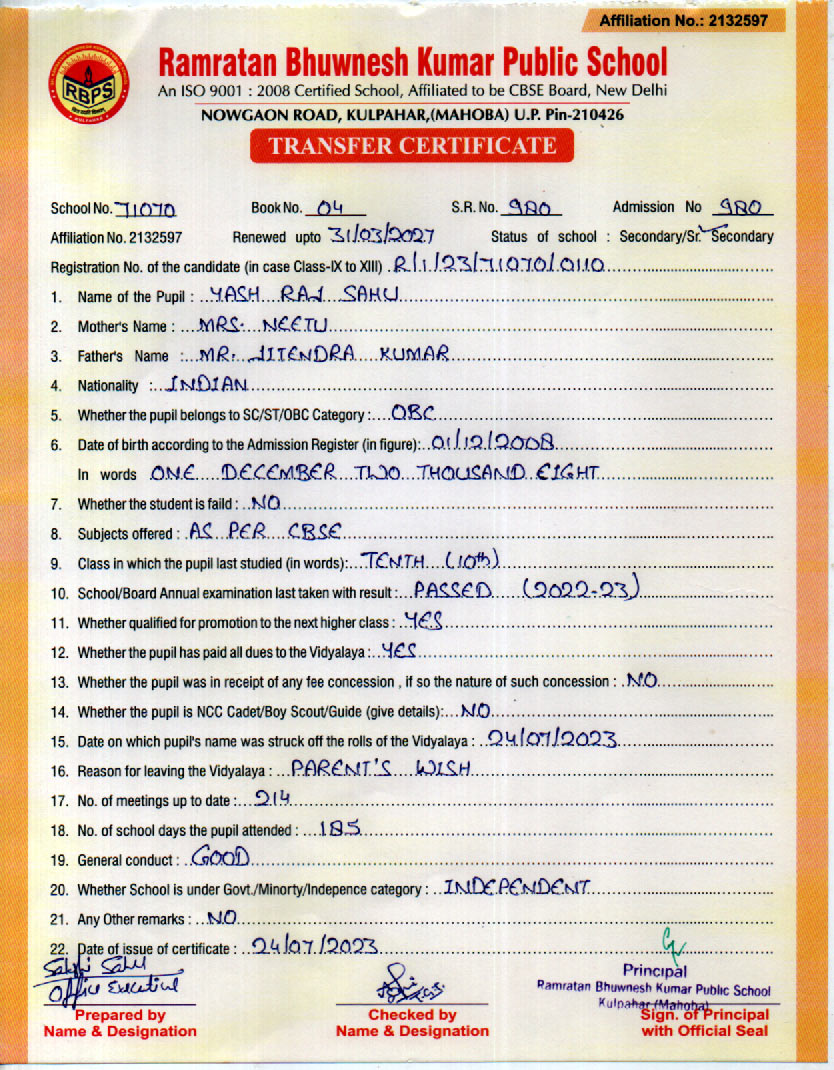 Affiliation No.: 2132597
Ramratan Bhuwnesh Kumar Public School
RBPS
An ISO 9001 : 2008 Certified School, Affiliated to be CBSE Board, New Delhi
NOWGAON ROAD, KULPAHAR,(MAHOBA) U.P. Pin-210426
TRANSFER CERTIFICATE
School No. 71070 Book No. 04 S.R. No. 980 Admission No 980
Affiliation No. 2132597 Renewed upto 31/03/2027 Status of school : Secondary/Sr. Secondary
Registration No. of the candidate (in case Class-IX to XIII) . R/1/23/71070/0110
1. Name of the Pupil : YASH RAJ SAHU
2. Mother's Name : MRS. NEETU
3. Father's Name : MR. JITENDRA KUMAR
4. Nationality : INDIAN
5. Whether the pupil belongs to SC/ST/OBC Category : OBC
6. Date of birth according to the Admission Register (in figure): 01/12/2008
In words ONE DECEMBER TWO THOUSAND EIGHT
7. Whether the student is faild : NO
8. Subjects offered : AS PER CBSE
9. Class in which the pupil last studied (in words): TENTH (10th)
10. School/Board Annual examination last taken with result : PASSED (2022-23)
11. Whether qualified for promotion to the next higher class : YES
12. Whether the pupil has paid all dues to the Vidyalaya : YES
13. Whether the pupil was in receipt of any fee concession , if so the nature of such concession : NO
14. Whether the pupil is NCC Cadet/Boy Scout/Guide (give details): NO
15. Date on which pupil's name was struck off the rolls of the Vidyalaya : 24/07/2023
16. Reason for leaving the Vidyalaya : PARENT'S WISH
17. No. of meetings up to date : 214
18. No. of school days the pupil attended : 185
19. General conduct : GOOD
20. Whether School is under Govt./Minorty/Indepence category : INDEPENDENT
21. Any Other remarks : NO
22. Date of issue of certificate : 24/07/2023
Sahu
Office Executive
Principal
Ramratan Bhuwnesh Kumar Public School
Kulpahar (Mahoba)
Prepared by Checked by Sign. of Principal
Name & Designation Name & Designation with Official Seal